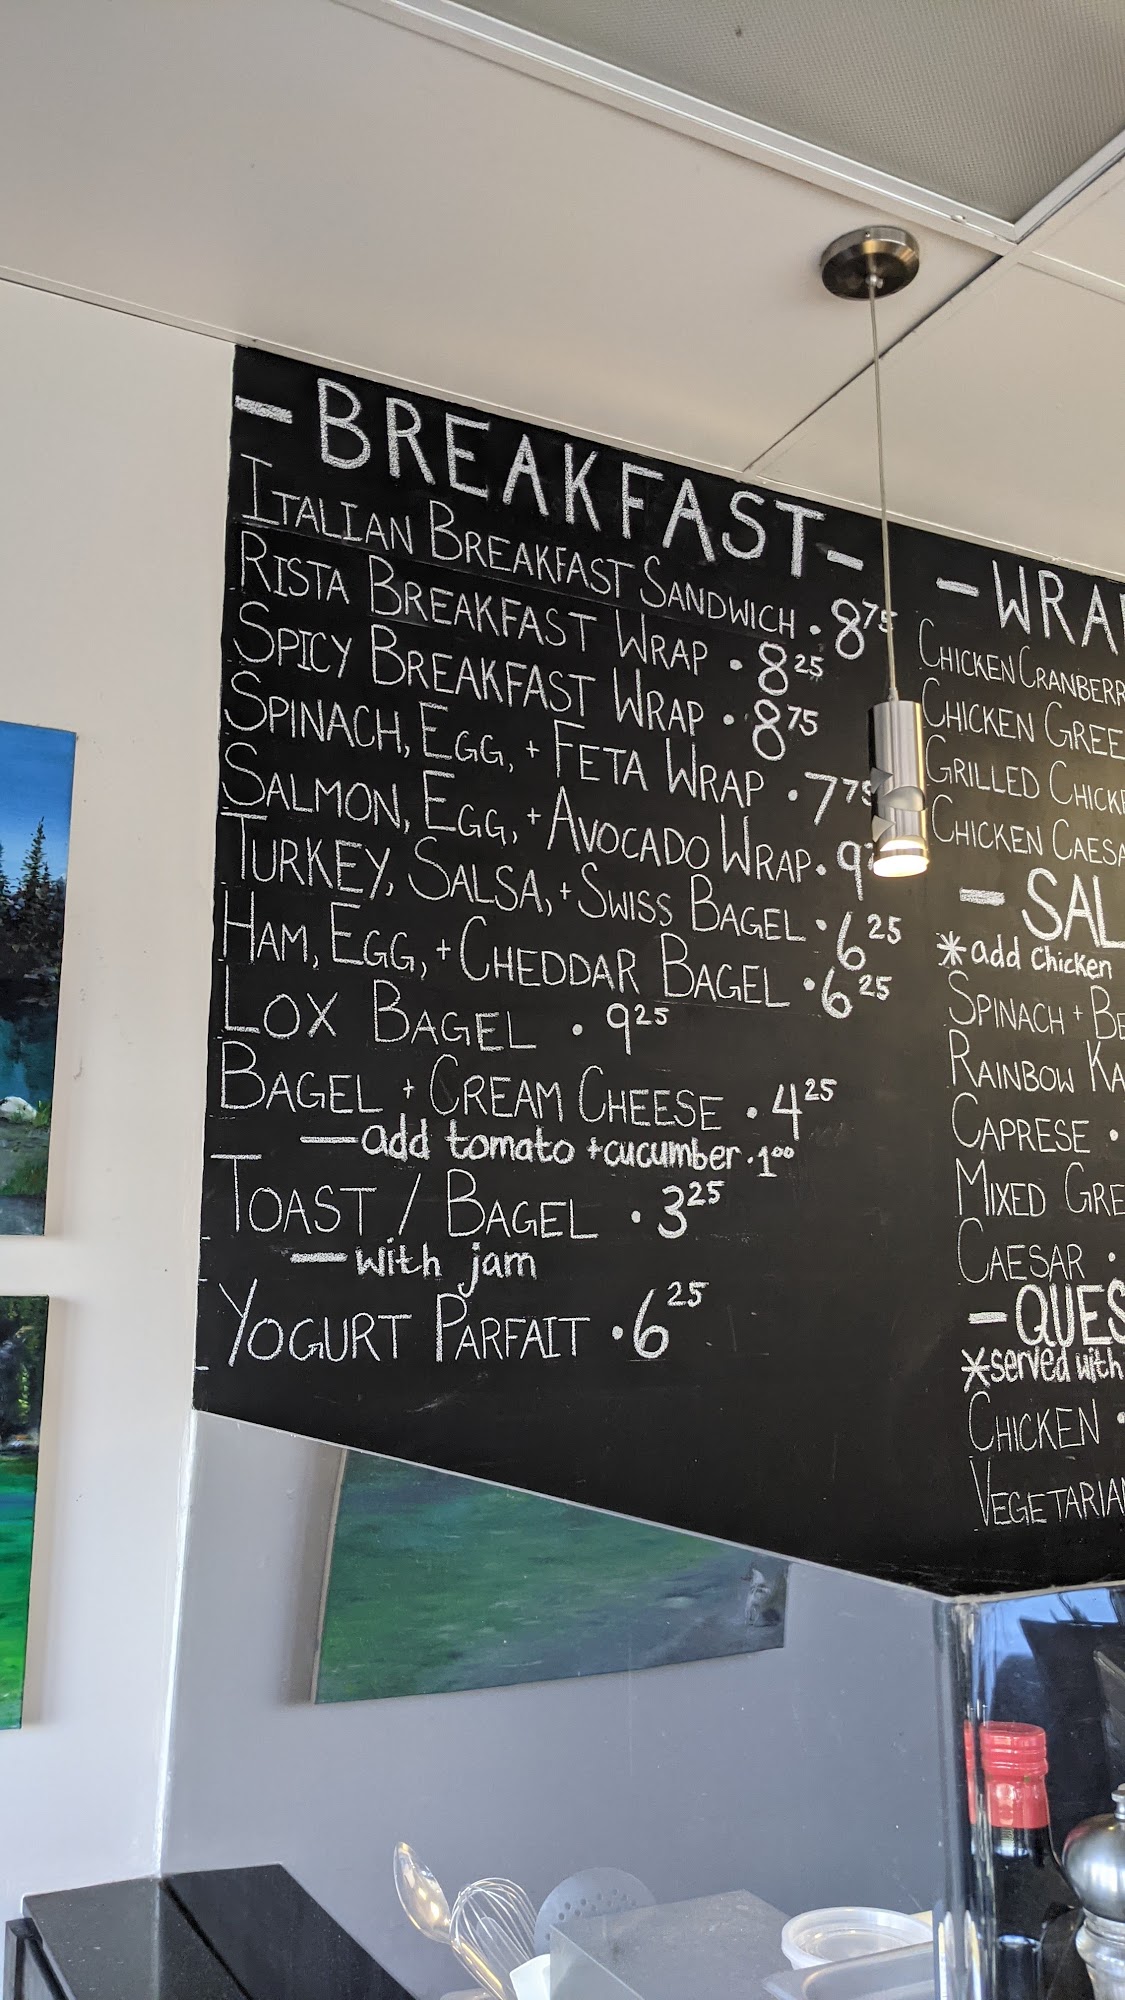 -BREAKFAST-
ITALIAN BREAKFAST SANDWICH . 8 75
RISTA BREAKFAST WRAP . 8 25
SPICY BREAKFAST WRAP . 8 75
SPINACH, EGG, + FETA WRAP . 7 75
SALMON, EGG, + AVOCADO WRAP . 9
TURKEY, SALSA, + SWISS BAGEL . 6 25
HAM, EGG, + CHEDDAR BAGEL . 6 25
LOX BAGEL . 9 25
BAGEL + CREAM CHEESE . 4 25
— add tomato + cucumber . 1 00
TOAST / BAGEL . 3 25
— with jam
YOGURT PARFAIT . 6 25
- WRA
CHICKEN CRANBERR
CHICKEN GREE
GRILLED CHICK
CHICKEN CAESA
- SAL
* add chicken
SPINACH + BE
RAINBOW KA
CAPRESE .
MIXED GRE
CAESAR .
- QUES
* served with
CHICKEN .
VEGETARIA